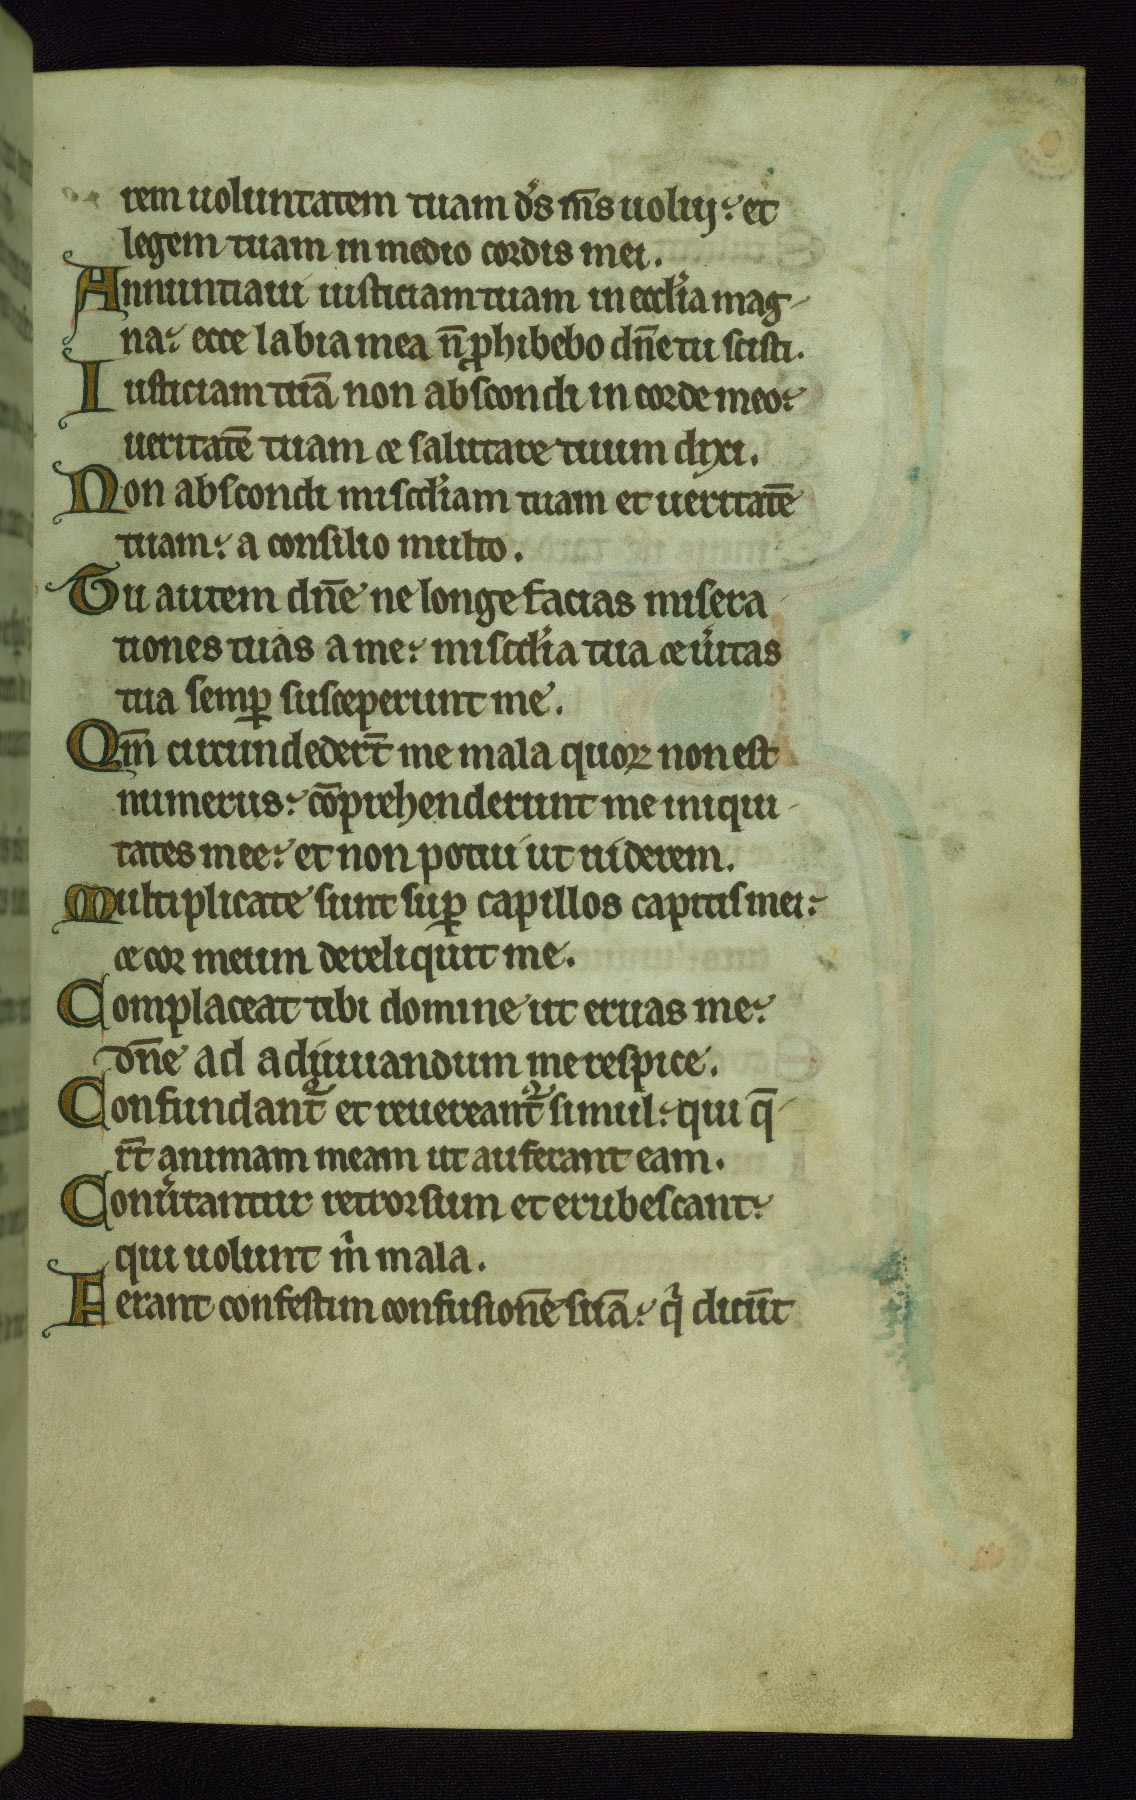 rem uoluntatem tuam d̕s m̅s uoluij: et
legem tuam in medio cordis mei.
Annuntiaui iusticiam tuam in eccl̕ia mag-
na: ecce labia mea n̅ ꝓhibebo dn̅e tu scisti.
Iusticiam tuā non abscondi in corde meo:
ueritatē tuam ⁊ salutare tuum dixi.
Non abscondi miscd̕iam tuam et ueritatē
tuam: a consilio multo.
Tu autem dn̅e ne longe facias misera
tiones tuas a me: miscd̕ia tua ⁊ u̕itas
tua semꝑ susceperunt me.
Qm̅ circundeder̅t me mala quoꝝ non est
numerus: cōprehenderunt me iniqui-
tates mee: et non potui ut uiderem.
Multiplicate sunt suꝑ capillos capitis mei:
⁊ cor meum dereliquit me.
Complaceat tibi domine ut eruas me:
dn̅e ad adiuuandum me respice.
Confundant᷑ et reuereant᷑ simul: qui q̅-
rt̅ animam meam ut auferant eam.
Conu̕tantur retrorsum et erubescant:
qui uolunt m̍ mala.
Ferant confestim confusionē suā: q̍ dicūt